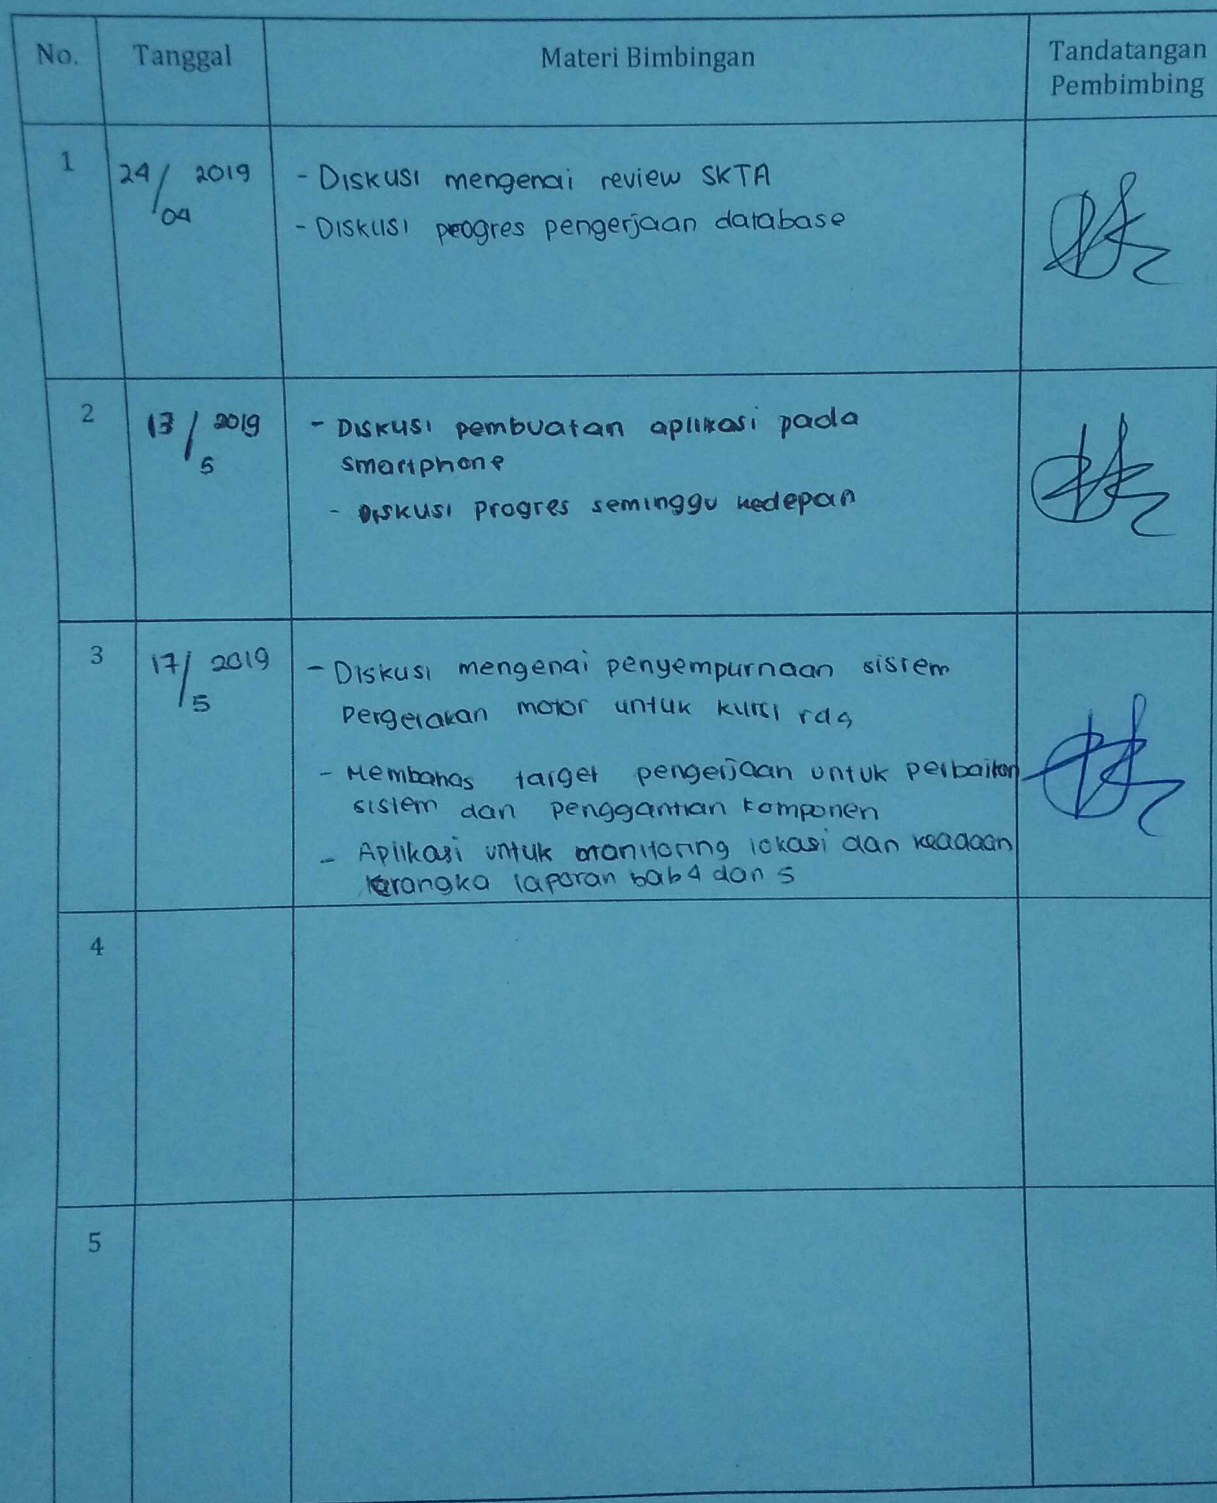 No. Tanggal Materi Bimbingan Tandatangan
Pembimbing
1 24/04 2019 - Diskusi mengenai review SKTA
- Diskusi progres pengerjaan database
2 13/5 2019 - Diskusi pembuatan aplikasi pada
smartphone
- Diskusi progres seminggu kedepan
3 17/5 2019 - Diskusi mengenai penyempurnaan sistem
pergerakan motor untuk kursi
- Membahas target pengerjaan untuk perbaikan
sistem dan penggantian komponen
- Aplikasi untuk monitoring lokasi dan keadaan
kerangka laporan bab 4 dan 5
4
5